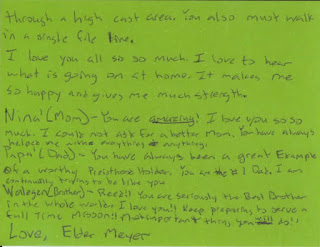 through a high cast area. You also must walk
in a single file line.
I love you all so so much. I love to hear
what is going on at home. It makes me
so happy and gives me much strength.
Nina' (Mom) - You are amazing! I love you so so
much. I could not ask for a better Mom. You have always
helped me with anything & anything.
Papa' (Dad) - You have always been a great Example
of a worthy Priesthood Holder. You are #1 Dad. I am
continually trying to be like you
(Brother) - Reed!! You are seriously the Best Brother
in the whole world. I love you!! Keep preparing to serve a
full Time Mission!! Most important thing you will do!!
Love, Elder Meyer